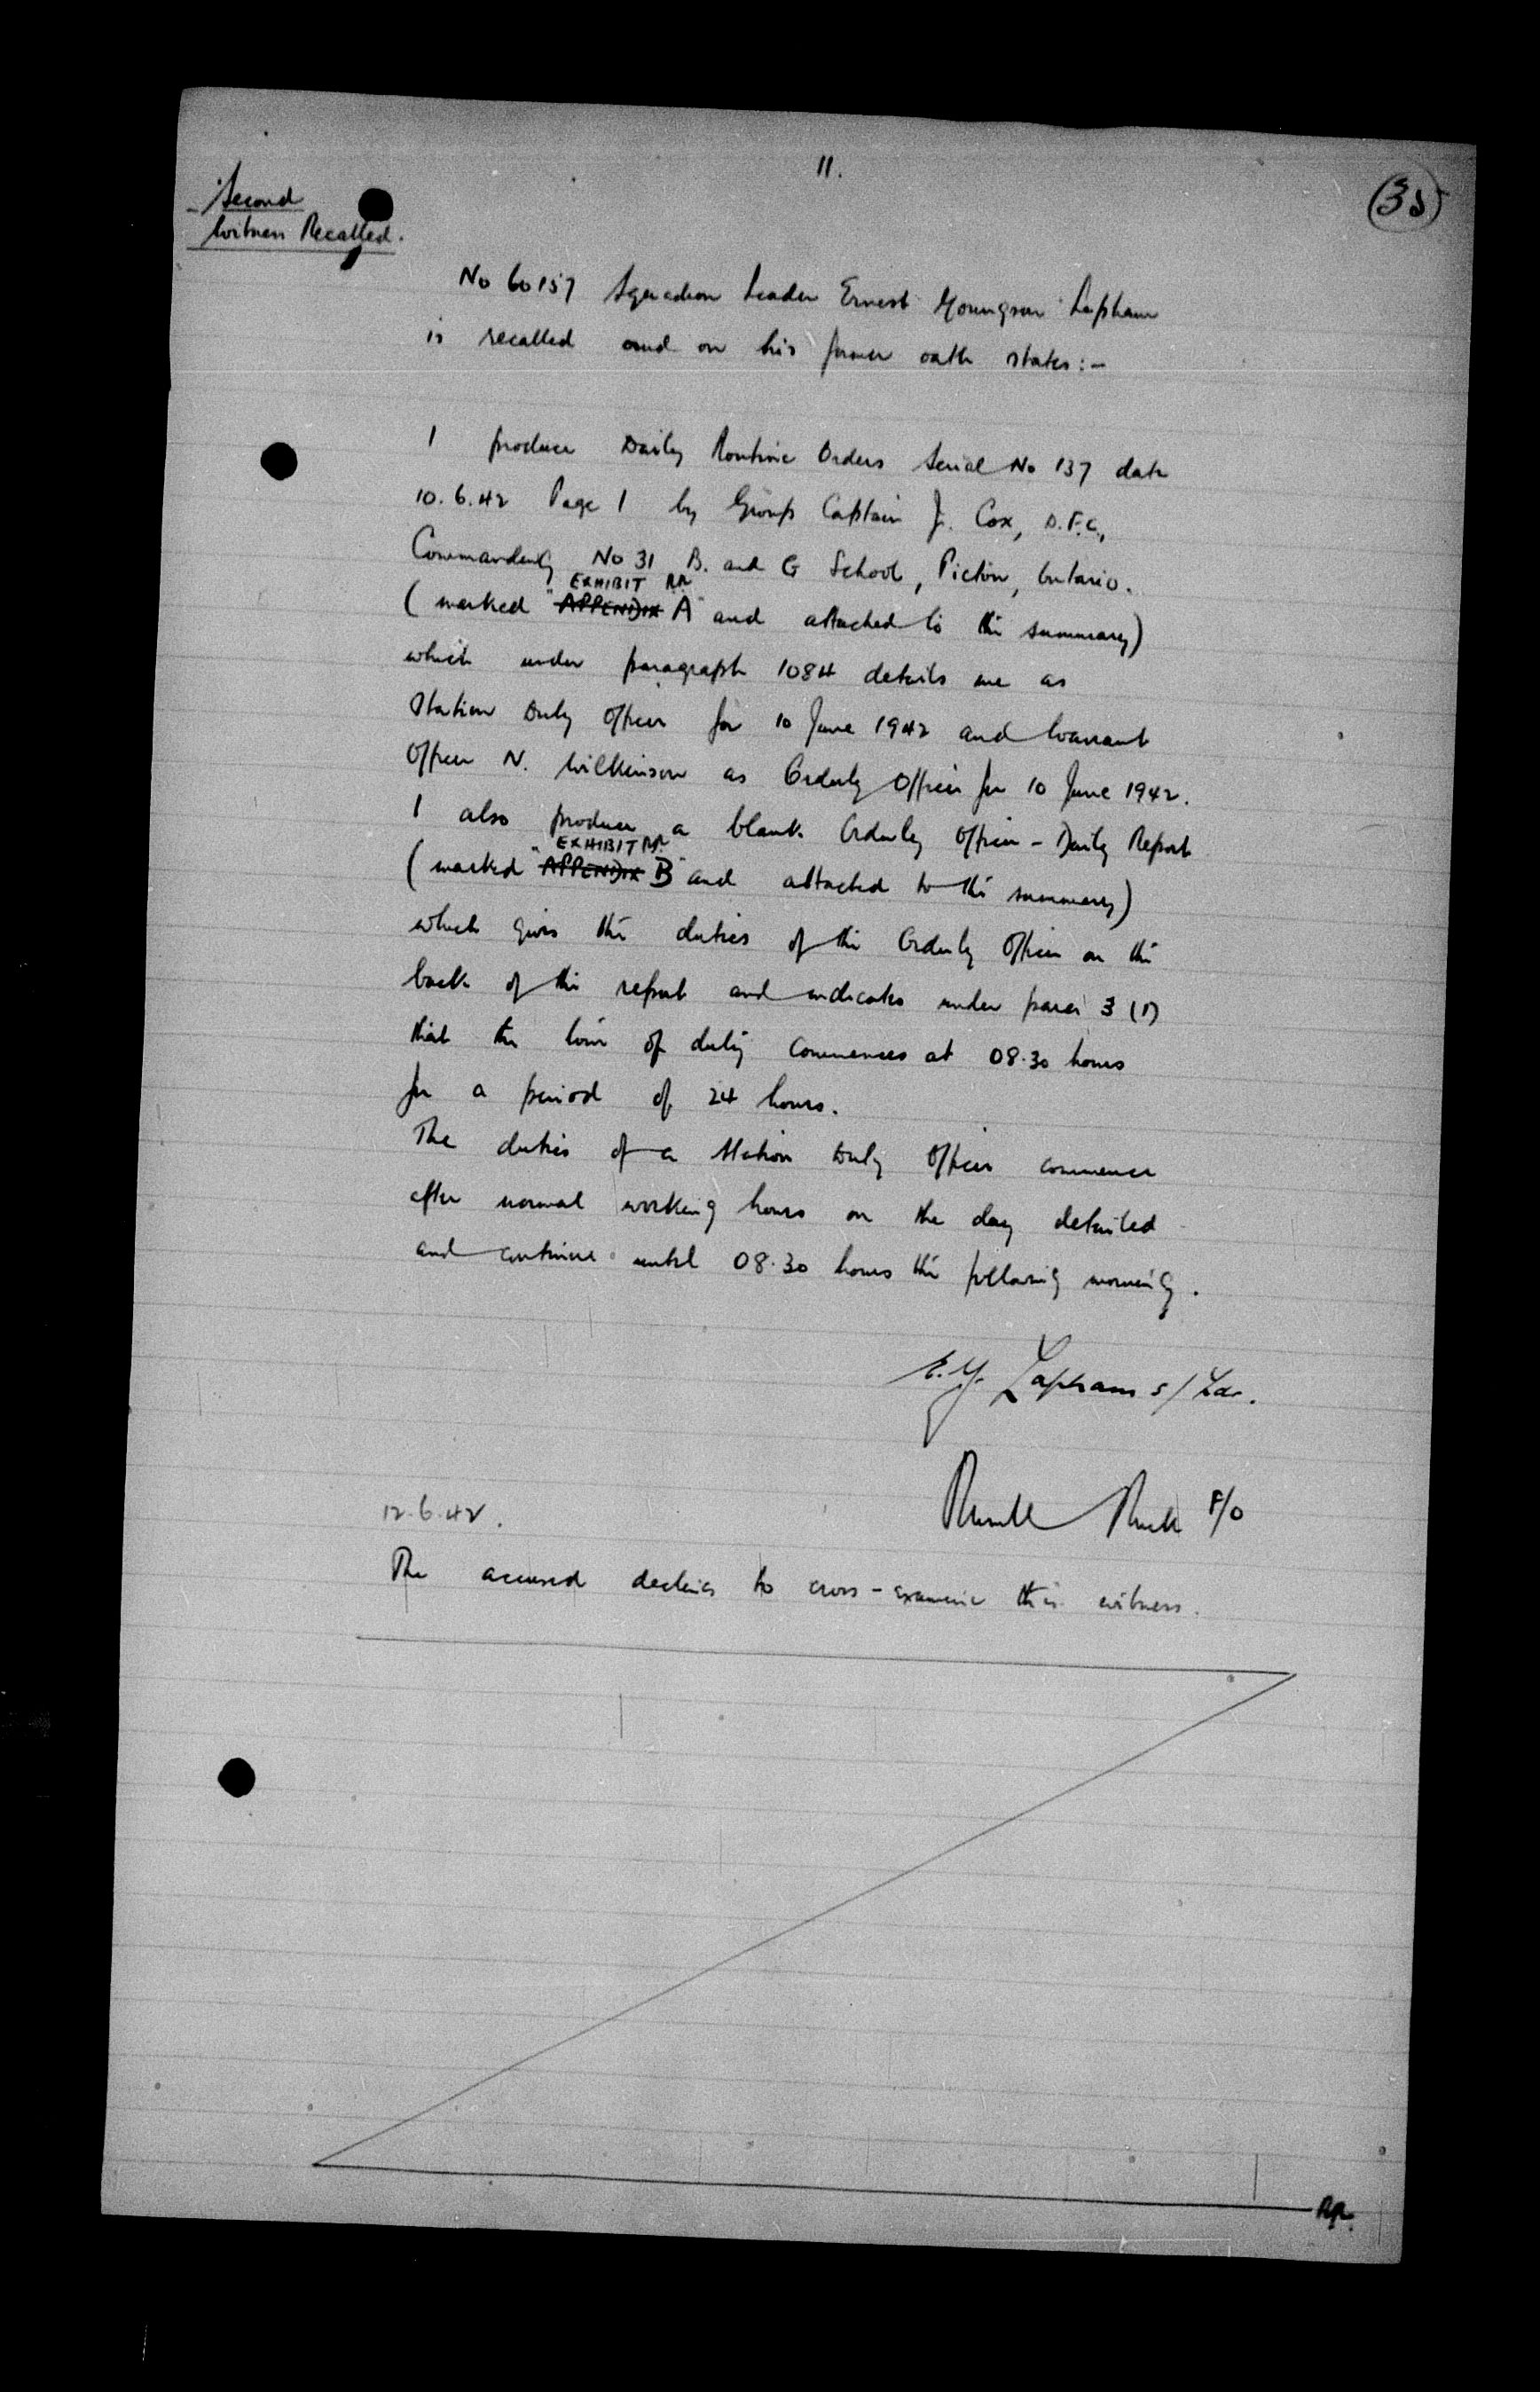 11.
(35)
Second
Witness Recalled.
No 60157 Squadron Leader Ernest Youngson Lapham
is recalled and on his former oath states:-
I produce Daily Routine Orders Serial No 137 date
10.6.42 Page 1 by Group Captain J. Cox, D.F.C.,
Commanding No 31 B. and G School, Picton, Ontario.
EXHIBIT RR
(marked "APPENDIX A" and attached to this summary)
which under paragraph 1084 details me as
Station Duty Officer for 10 June 1942 and Warrant
Officer N. Wilkinson as Orderly Officer for 10 June 1942.
I also produce a blank Orderly Officer - Daily Report
EXHIBIT RR
(marked "APPENDIX B" and attached to this summary)
which gives the duties of the Orderly Officer on the
back of the report and indicates under para 3 (1)
that the tour of duty commences at 08.30 hours
for a period of 24 hours.
The duties of a Station Duty Officer commence
after normal working hours on the day detailed
and continue until 08.30 hours the following morning.
E.Y. Lapham S/Ldr.
F/O
12.6.42.
The accused declines to cross-examine this witness.
RR.